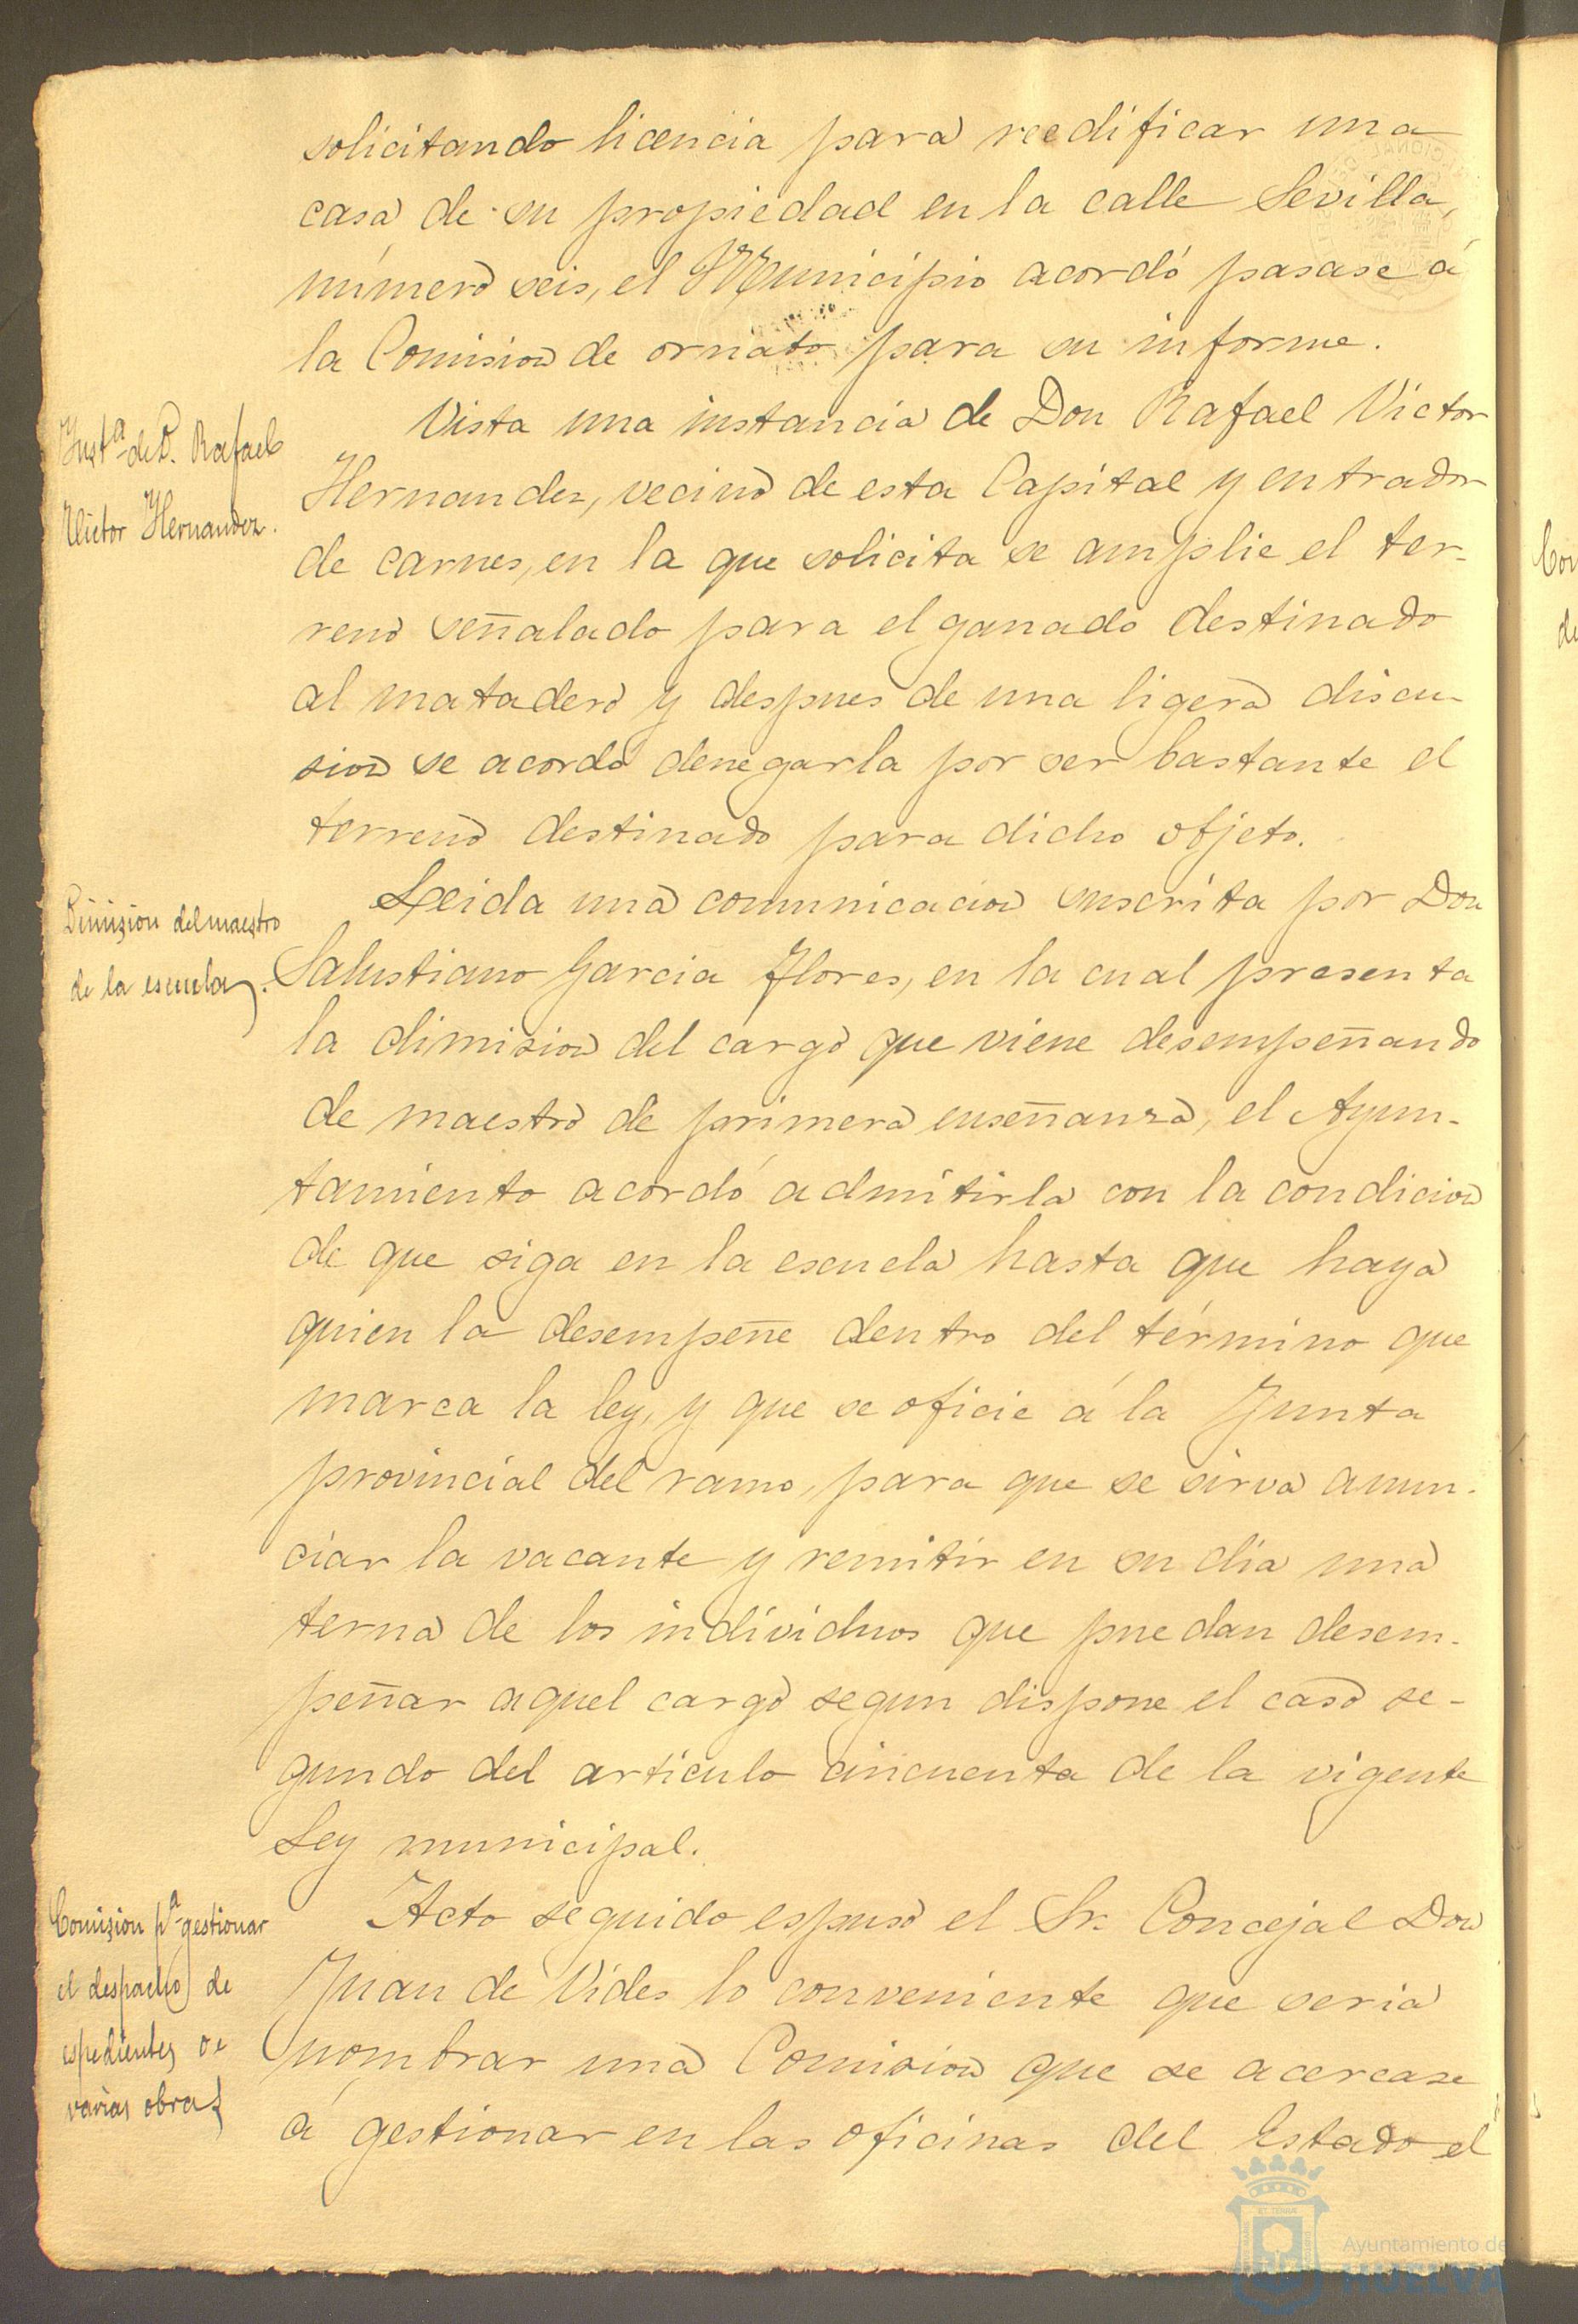 solicitando licencia para reedificar una
casa de su propiedad en la calle Sevilla,
número seis, el Municipio acordó pasase á
la Comision de ornato para su informe.
Inst.ª de D. Rafael
Victor Hernandez.
Vista una instancia de Don Rafael Victor
Hernandez, vecino de esta Capital y entrador
de carnes, en la que solicita se amplie el ter-
reno señalado para el ganado destinado
al matadero y despues de una ligera discu-
sion se acordó denegarla por ser bastante el
terreno destinado para dicho objeto.
Dimision del maestro
de la escuela.
Leida una comunicacion suscrita por Don
Salustiano Garcia Flores, en la cual presenta
la dimision del cargo que viene desempeñando
de maestro de primera enseñanza, el Ayun-
tamiento acordó admitirla con la condicion
de que siga en la escuela hasta que haya
quien la desempeñe dentro del término que
marca la ley, y que se oficie á la Junta
provincial del ramo, para que se sirva anun-
ciar la vacante y remitir en su dia una
terna de los individuos que puedan desem-
peñar aquel cargo segun dispone el caso se-
gundo del artículo cincuenta de la vigente
Ley municipal.
Comision p.ª gestionar
el despacho de
espedientes de
varias obras
Acto seguido espuso el Sr. Concejal Don
Juan de Vides lo conveniente que seria
nombrar una Comision que se acercase
á gestionar en las oficinas del Estado el
Ayuntamiento de
HUELVA